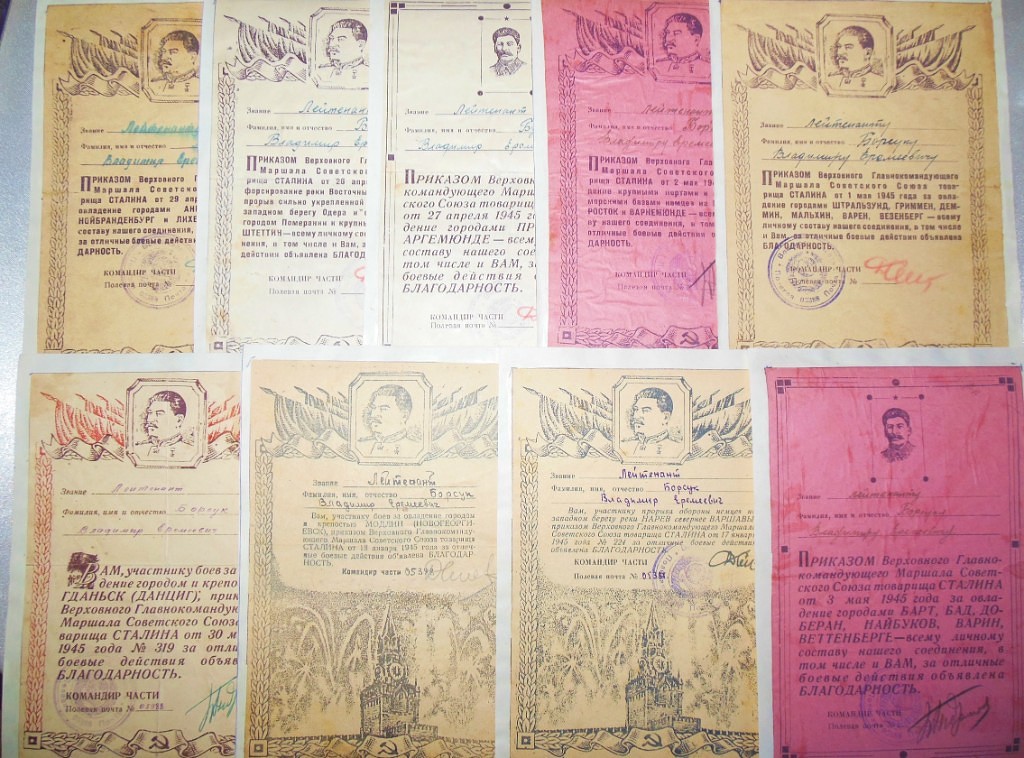 Звание Лейтенанту
Фамилия, имя и отчество
Владимир Ере
ПРИКАЗОМ Верховного Г
Маршала Советско
рища СТАЛИНА от 29 апре
овладение городами АН
НЕЙБРАНДЕНБУРГ и ЛИХЕ
составу нашего соединения,
за отличные боевые действи
ДАРНОСТЬ.
КОМАНДИР ЧАСТИ
Полевая почта №
Звание Лейтенант
Фамилия, имя и отчество Б
Владимир Ер
ПРИКАЗОМ Верховного Гла
Маршала Советского
рища СТАЛИНА от 26 апр
форсирование реки Восточны
прорыв сильно укрепленной
западном берегу Одера и
городом Померании и крупны
ШТЕТТИН—всему личному сос
нения, в том числе и Вам, за
действия объявлена БЛАГОД
КОМАНДИР ЧАСТИ
Полевая почта №
Звание Лейтенант
Фамилия, имя и отчество Б
Владимир Ереме
ПРИКАЗОМ Верховног
командующего Марш
ского Союза товарищ
от 27 апреля 1945 г
дение городами ПР
АРГЕМЮНДЕ—всем
составу нашего сое
том числе и ВАМ, з
боевые действия о
БЛАГОДАРНОСТЬ.
КОМАНДИР ЧАСТИ
Полевая почта №
Звание Лейтенант
Фамилия, имя и отчество Бор
Владимиру Ереме
ПРИКАЗОМ Верховного Гла
Маршала Советского
рища СТАЛИНА от 2 мая 19
дение крупными портами и
морскими базами немцев на
РОСТОК и ВАРНЕМЮНДЕ—всем
ву нашего соединения, в том
отличные боевые действия о
ДАРНОСТЬ.
КОМАНДИР ЧАСТИ
Полевая почта №
Звание Лейтенанту
Фамилия, имя и отчество Борсуку
Владимиру Еремеевичу
ПРИКАЗОМ Верховного Главнокомандующего
Маршала Советского Союза това-
рища СТАЛИНА от 1 мая 1945 года за ов-
дение городами ШТРАЛЬЗУНД, ГРИММЕН, ДЕМ-
МИН, МАЛЬХИН, ВАРЕН, ВЕЗЕНБЕРГ—всему
личному составу нашего соединения, в том числе
и Вам, за отличные боевые действия объявлена
БЛАГОДАРНОСТЬ.
КОМАНДИР ЧАСТИ
Полевая почта №
Звание Лейтенант
Фамилия, имя и отчество Борсук
Владимир Еремеевич
ВАМ, участнику боев за
дение городом и крепо
ГДАНЬСК (ДАНЦИГ), прик
Верховного Главнокоманду
Маршала Советского Союза
варища СТАЛИНА от 30 м
1945 года № 319 за отли
боевые действия объяв
БЛАГОДАРНОСТЬ.
КОМАНДИР ЧАСТИ
Полевая почта №
Звание Лейтенант
Фамилия, имя, отчество Борсук
Владимир Еремеевич
Вам, участнику боев за овладение городом
и крепостью МОДЛИН (НОВОГЕОРГИ-
ЕВСК), приказом Верховного Главнокоманду-
ющего Маршала Советского Союза товарища
СТАЛИНА от 18 января 1945 года за отлич-
ные боевые действия объявлена БЛАГОДАР-
НОСТЬ.
Командир части
Звание Лейтенант
Фамилия, имя, отчество Борсук
Владимир Еремеевич
Вам, участнику прорыва обороны немцев н
западном берегу реки НАРЕВ севернее ВАРШАВЫ
приказом Верховного Главнокомандующего Маршала
Советского Союза товарища СТАЛИНА от 17 января
1945 года № 224 за отличные боевые действ
объявлена БЛАГОДАРНОСТЬ.
КОМАНДИР ЧАСТИ
Полевая почта №
Звание Лейтенанту
Фамилия, имя и отчество Борсуку
ПРИКАЗОМ Верховного Главно-
командующего Маршала Совет-
ского Союза товарища СТАЛИНА
от 3 мая 1945 года за овла-
дение городами БАРТ, БАД, ДО-
БЕРАН, НАЙБУКОВ, ВАРИН,
ВЕТТЕНБЕРГЕ—всему личному
составу нашего соединения, в
том числе и ВАМ, за отличные
боевые действия объявлена
БЛАГОДАРНОСТЬ.
КОМАНДИР ЧАСТИ
Полевая почта №